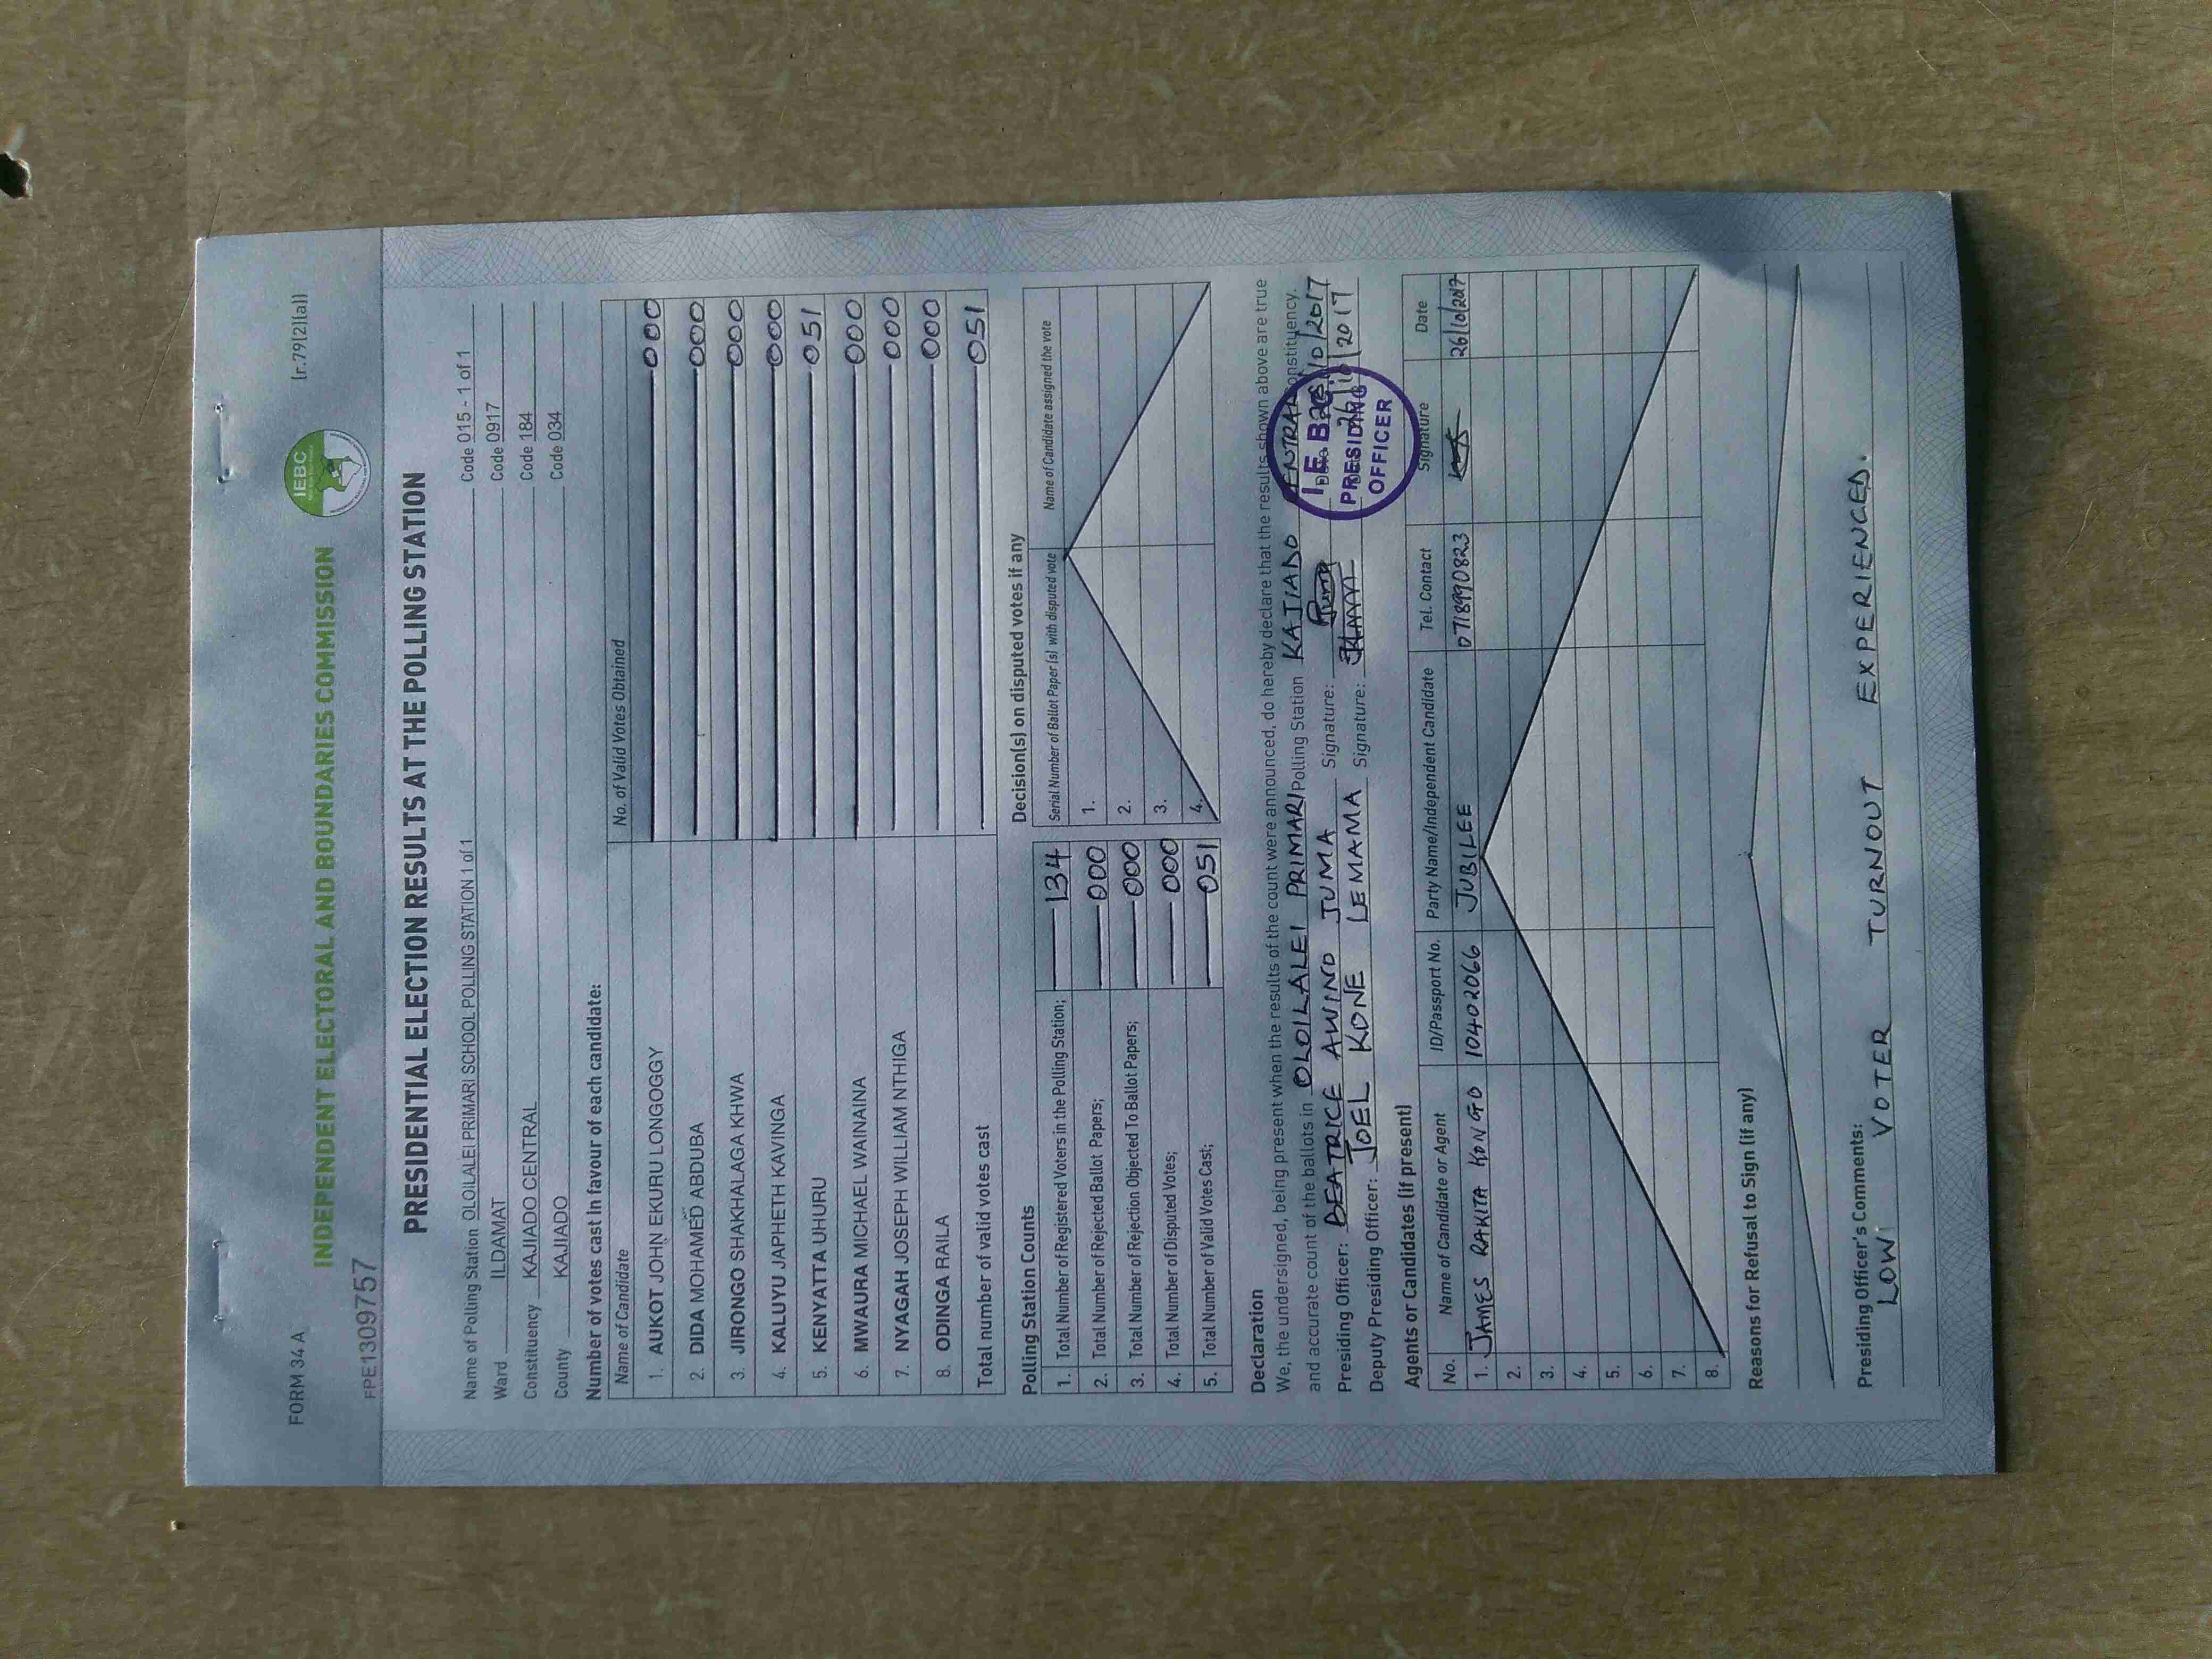 FORM 34 A
INDEPENDENT ELECTORAL AND BOUNDARIES COMMISSION
IEBC
[r.79(2)(a)]
FPE1309757
PRESIDENTIAL ELECTION RESULTS AT THE POLLING STATION
Name of Polling Station OLOILALEI PRIMARI SCHOOL POLLING STATION 1 of 1 Code 015 - 1 of 1
Ward ILDAMAT Code 0917
Constituency KAJIADO CENTRAL Code 184
County KAJIADO Code 034
Number of votes cast in favour of each candidate:
Name of Candidate No. of Valid Votes Obtained
1. AUKOT JOHN EKURU LONGOGGY 000
2. DIDA MOHAMED ABDUBA 000
3. JIRONGO SHAKHALAGA KHWA 000
4. KALUYU JAPHETH KAVINGA 000
5. KENYATTA UHURU 051
6. MWAURA MICHAEL WAINAINA 000
7. NYAGAH JOSEPH WILLIAM NTHIGA 000
8. ODINGA RAILA 000
Total number of valid votes cast 051
Polling Station Counts
1. Total Number of Registered Voters in the Polling Station; 134
2. Total Number of Rejected Ballot Papers; 000
3. Total Number of Rejection Objected To Ballot Papers; 000
4. Total Number of Disputed Votes; 000
5. Total Number of Valid Votes Cast; 051
Decision(s) on disputed votes if any
Serial Number of Ballot Paper (s) with disputed vote Name of Candidate assigned the vote
1.
2.
3.
4.
Declaration
We, the undersigned, being present when the results of the count were announced, do hereby declare that the results shown above are true
and accurate count of the ballots in OLOILALEI PRIMARI Polling Station KAJIADO CENTRAL Constituency.
Presiding Officer: BEATRICE AWINO JUMA Signature: 26/10/2017
Deputy Presiding Officer: JOEL KONE LEMAMA Signature: 26/10/2017
I.E.B.C
PRESIDING
OFFICER
Agents or Candidates (if present)
No. Name of Candidate or Agent ID/Passport No. Party Name/Independent Candidate Tel. Contact Signature Date
1. JAMES RAKITA KONGO 10402066 JUBILEE 0718990823 26/10/2017
2.
3.
4.
5.
6.
7.
8.
Reasons for Refusal to Sign (if any)
Presiding Officer's Comments:
LOW VOTER TURNOUT EXPERIENCED.